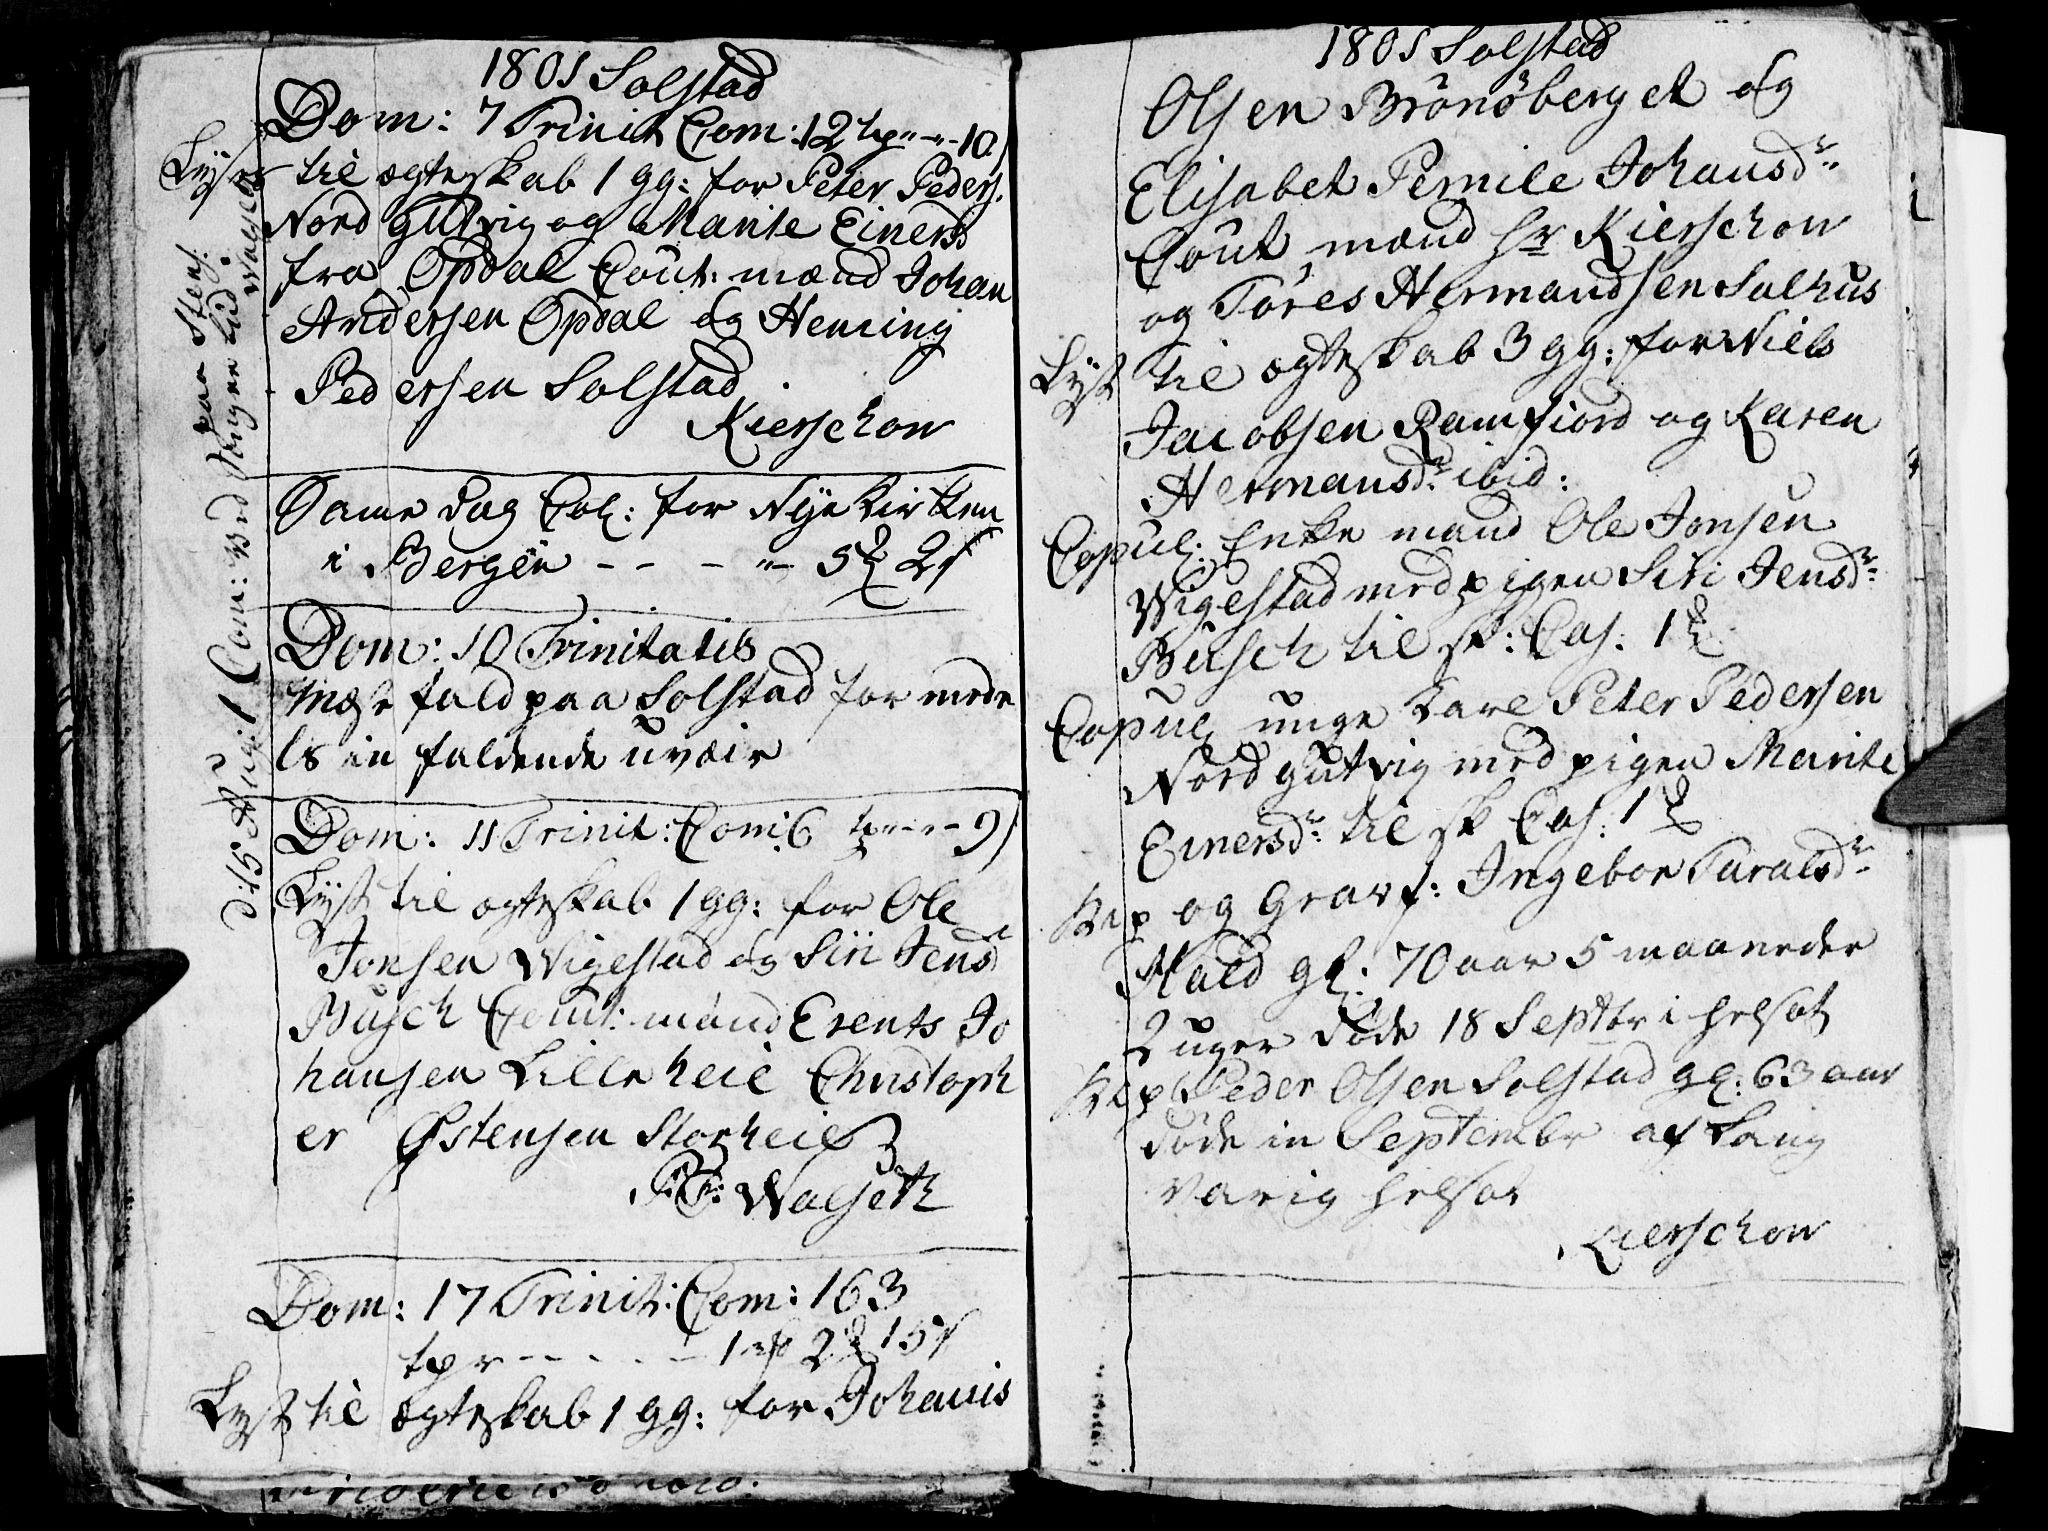 1801 Solstad
Dom: 7 Trinit Com: 12 tpr - - - 10
Lyses til ægteskab 1 gg: for Peter Peders.
Nord Gutvig og Marite Einersd
fra Opdal Cout: mænd Johan
Andersen Opdal og Hening
Pedersen Solstad
Kierschow
Same dag Col: for Nye Kirken
i Bergen - - - - 5 2
Dom: 10 Trinitatis
Mæsse fald paa Solstad for mede
ls in faldende uvær
Dom: 11 Trinit: Com: 6 tpr - - - 9
Lyst til ægteskab 1 gg: for Ole
Jonsen Wigestad og Siri Jensd
Busch Cout: mænd Erents Jo
hansen Lille heie Christoph
er Østensen Storheie
Walseth
Dom: 17 Trinit: Com: 163
tpr - - - - - 1 2 15
Lyst til ægteskab 1 gg: for Johanis
d: 15 Aug: 1 Com: ved
paa Stens.
Walseth
1801 Solstad
Olsen Brönöberget og
Elisabet Pernile Johansdr
Cout mænd hr Kierschow
og Tøres Hermandsen Salhus
Lyst til ægteskab 3 gg: for Niels
Jacobsen Ramfiord og Karen
Hermansdr ibid:
Copul: Enke mand Ole Jonsen
Wigestad med pigen Siri Jensdr
Busch til sk: Cas: 1
Copul unge Karl Peter Pedersen
Nord gutvig med pigen Marite
Einersdr til sk Cas: 1
og Gravf: Ingebor Taralsdr
Hald gl: 70 aar 5 maaneder
2 uger døde 18 Septbr i helsot
Peder Olsen Solstad gl: 63 aar
døde in Septembr af Lang
varig helsot
Kierschow